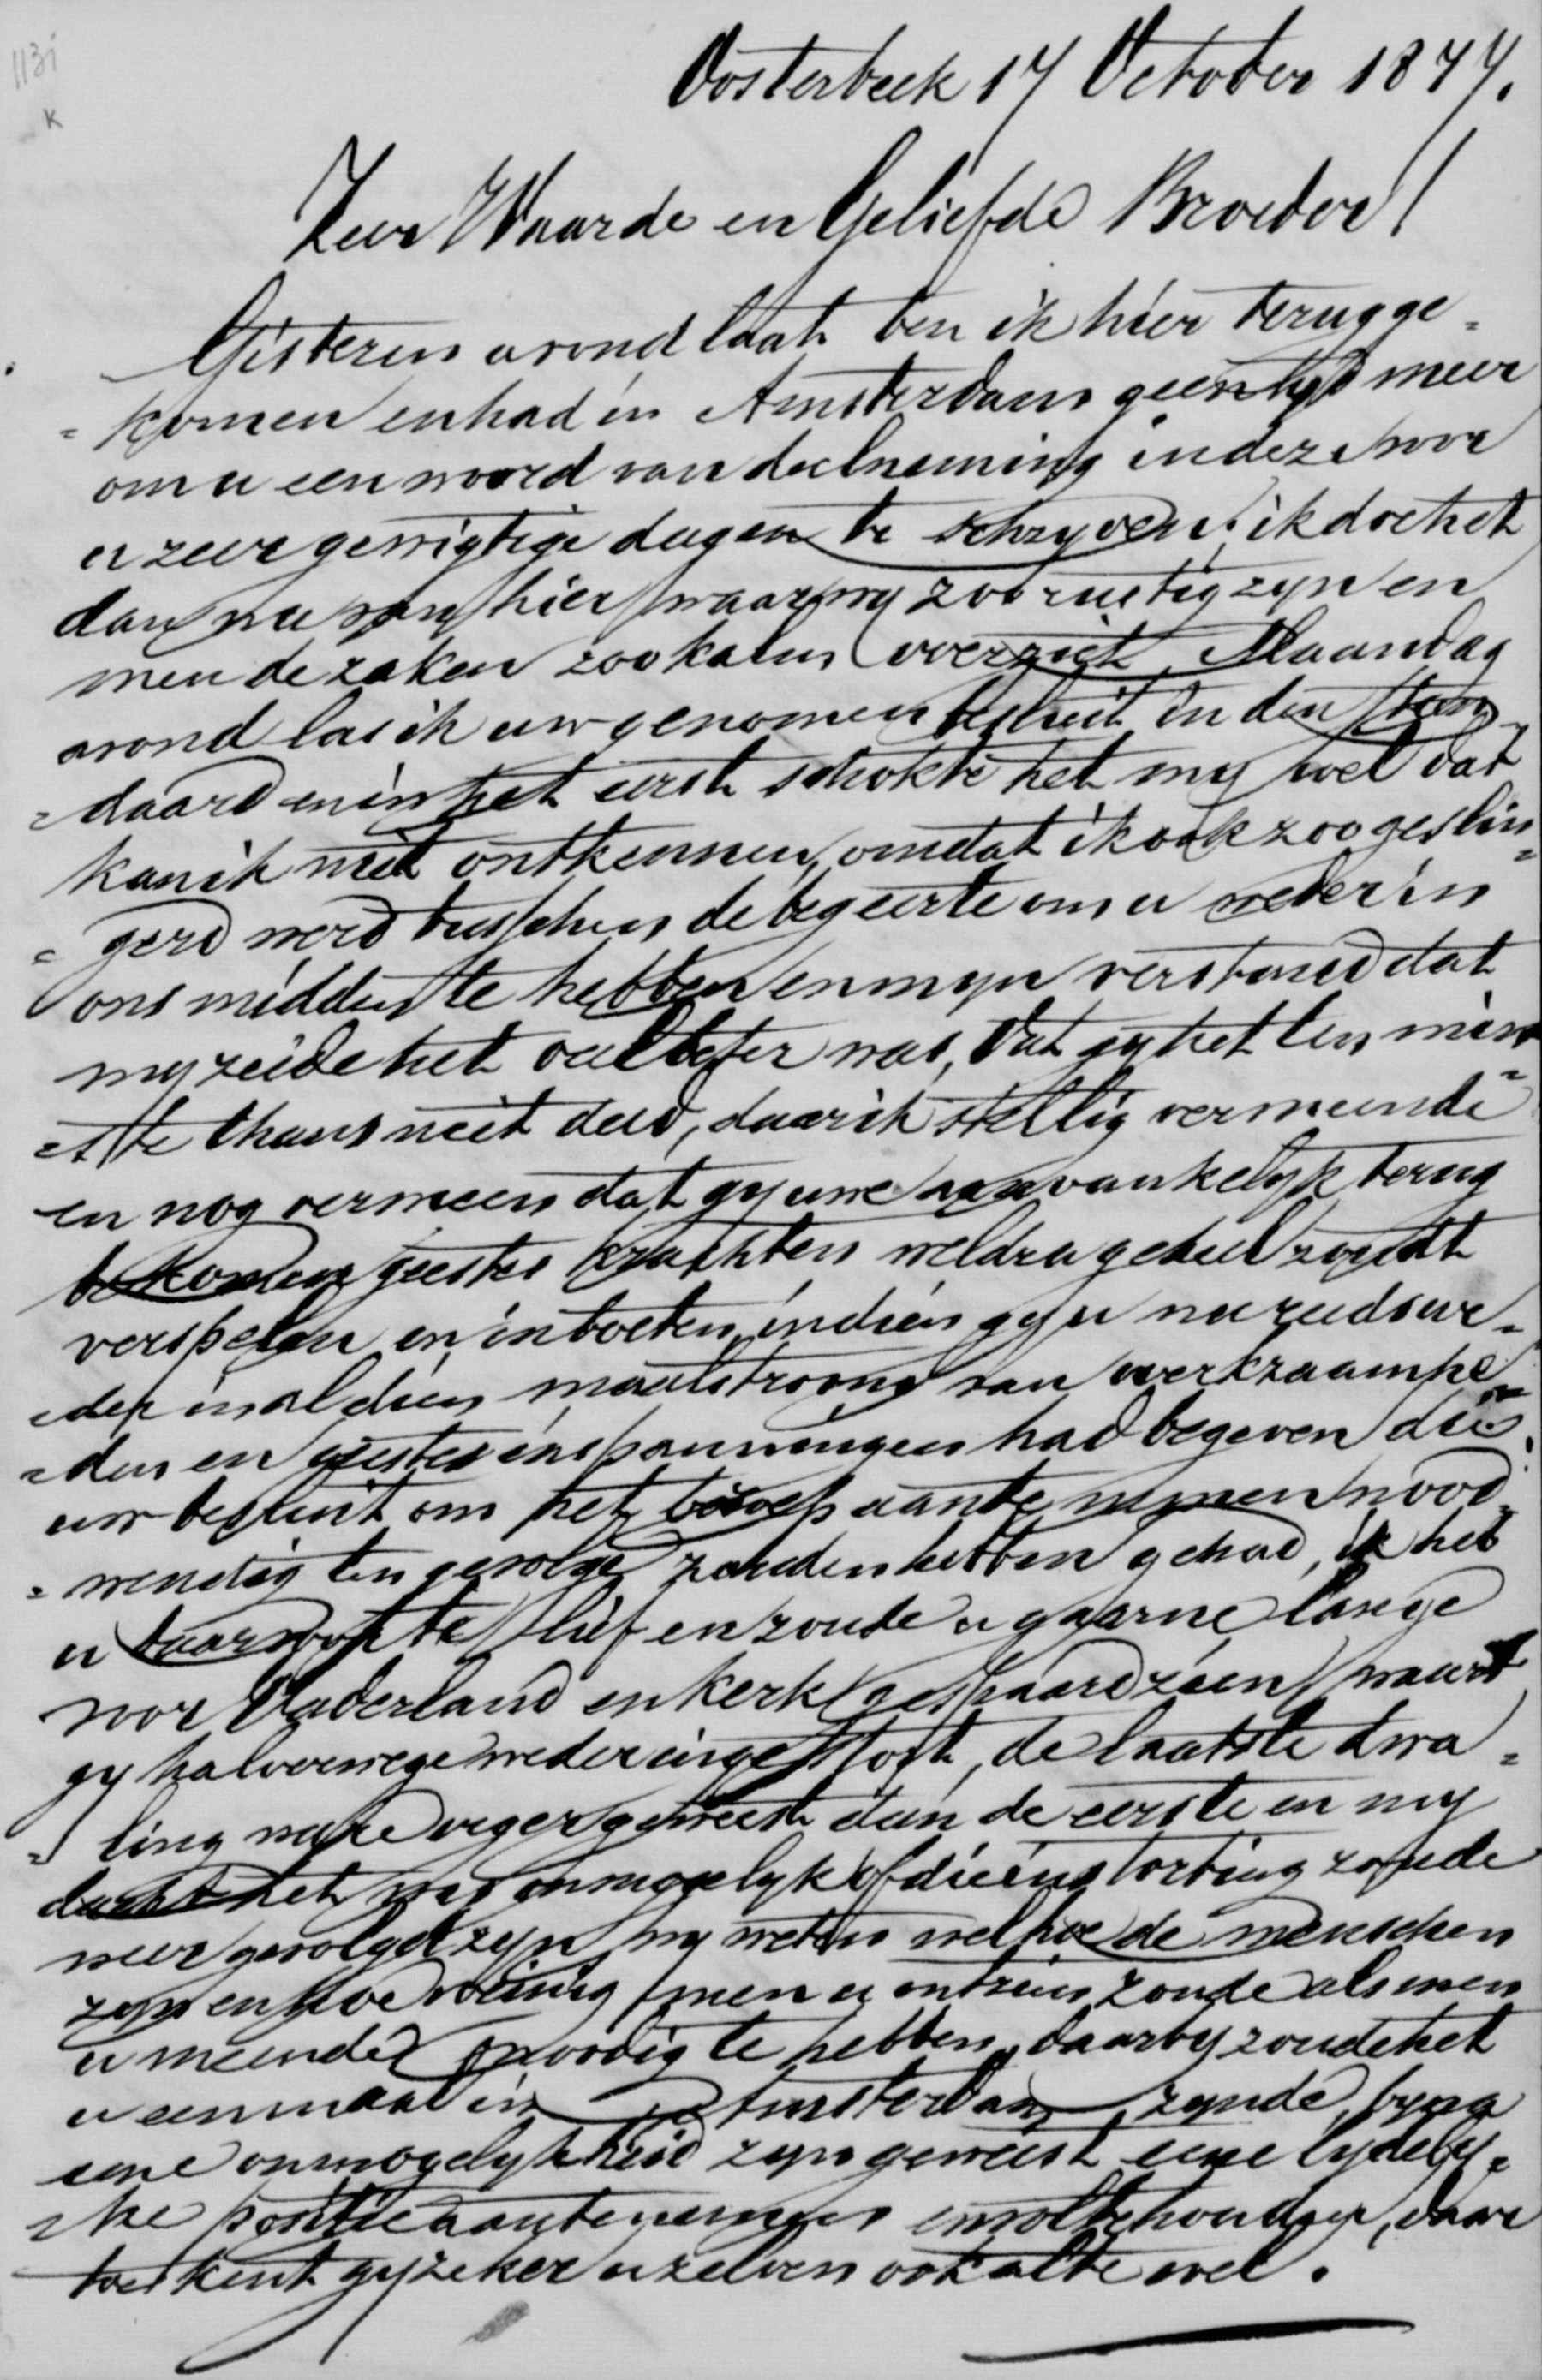 113i
K
Oosterbeek 17 October 1877.
Zeer Waarde en Geliefde Broeder!
Gisteren avond laat ben ik hier terugge=
=komen en had in Amsterdam geen tyd meer
om u een woord van deelneming in deze voor
u zeer gewigtige dagen te schryven; ik doe het
dan nu van hier, waar wy zoo rustig zyn en
men de zaken zoo kalm overziet. Maandag
avond las ik uw genomen besluit in den Stan=
=daard en in het eerst schokte het my wel dat
kan ik niet ontkennen, omdat ik ook zoo geslin=
=gerd werd tusschen de begeerte om u weder in
ons midden te hebben en myn verstand dat
my zeide het veel beter was, dat gy het ten min=
=ste thans niet deed, daar ik stellig vermeende
en nog vermeen dat gy uwe aanvankelyk terug
bekomen geestes krachten weldra geheel zoudt
verspelen en inboeten, indien gy u nu reeds we=
=der in al dien maalstroom van werkzaamhe=
=den en geestes inspanningen had begeven die
uw besluit om het beroep aan te nemen nood=
=wendig ten gevolge zouden hebben gehad, ik heb
u daarvoor te lief en zoude u gaarne lange
voor Vaderland en Kerk gespaard zien, waart
gy halverwege weder ingestort, de laatste dwa=
=ling ware erger geweest dan de eerste en my
dacht het was onmogelyk of die instorting zoude
weer gevolgd zyn, wy weten wel hoe de menschen
zyn en hoe weinig men u ontzien zoude als men
u meende noodig te hebben, daarby zoude het
u eenmaal in Amsterdam zynde, byna
eene onmogelykheid zyn geweest eene lydely=
=ke positie aan te nemen en vol te houden, daar
toe kent gy zeker u zelven ook al te wel.